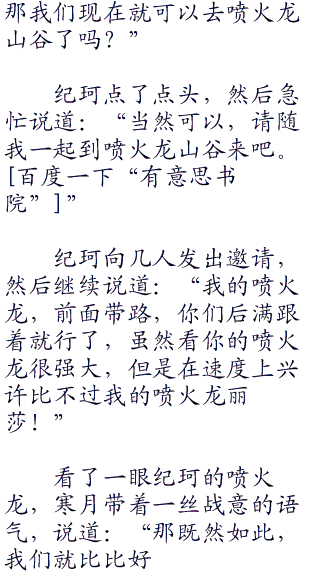 那我们现在就可以去喷火龙
山谷了吗？”
纪珂点了点头，然后急
忙说道：“当然可以，请随
我一起到喷火龙山谷来吧。
[百度一下“有意思书
院”]”
纪珂向几人发出邀请，
然后继续说道：“我的喷火
龙，前面带路，你们后满跟
着就行了，虽然看你的喷火
龙很强大，但是在速度上兴
许比不过我的喷火龙丽
莎！”
看了一眼纪珂的喷火
龙，寒月带着一丝战意的语
气，说道：“那既然如此，
我们就比比好